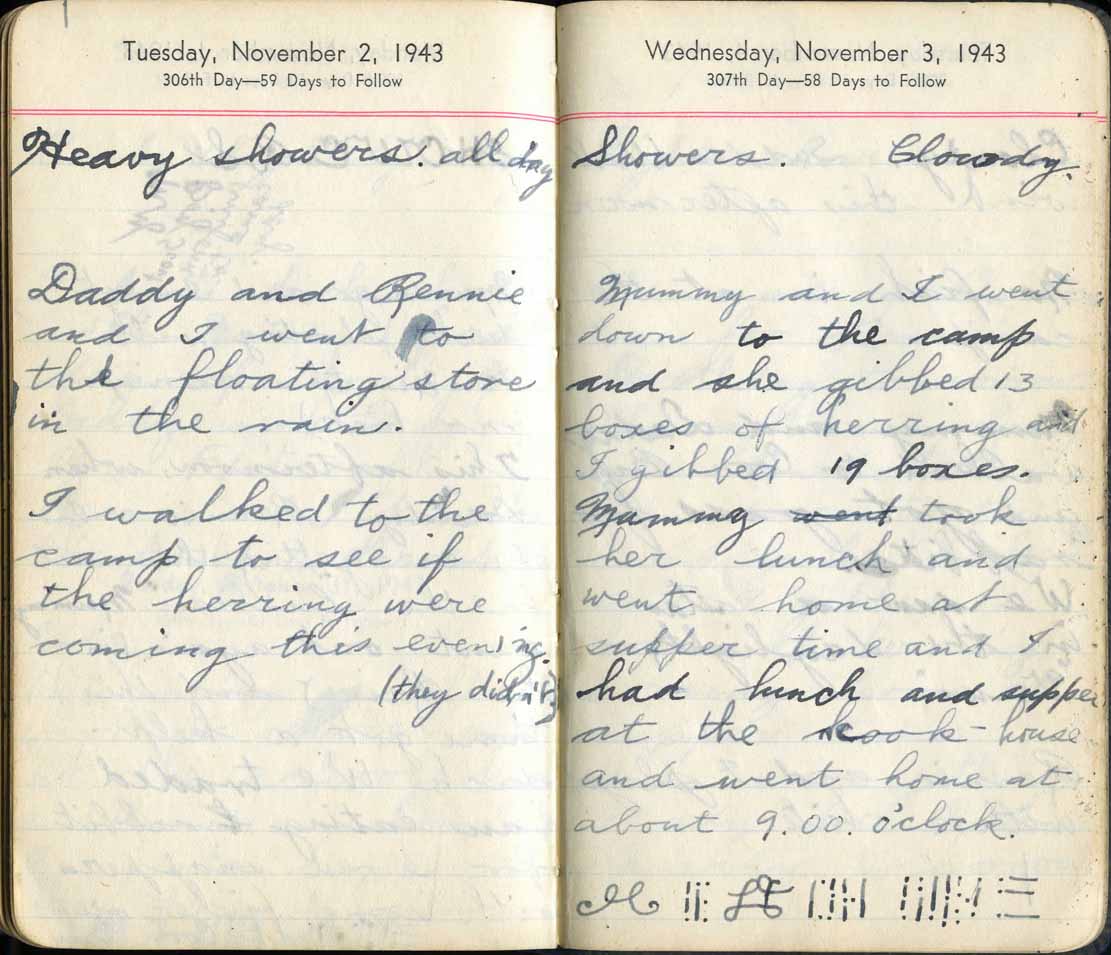 Tuesday, November 2, 1943
306th Day—59 Days to Follow
Heavy showers all day
Daddy and Rennie
and I went to
the floating store
in the rain.
I walked to the
camp to see if
the herring were
coming this evening.
(they didn't)
Wednesday, November 3, 1943
307th Day—58 Days to Follow
Showers. Clowdy.
Mummy and I went
down to the camp
and she gibbed 13
boxes of herring and
I gibbed 19 boxes.
Mummy went took
her lunch and
went home at
supper time and I
had lunch and supper
at the cook-house
and went home at
about 9.00. o'clock.